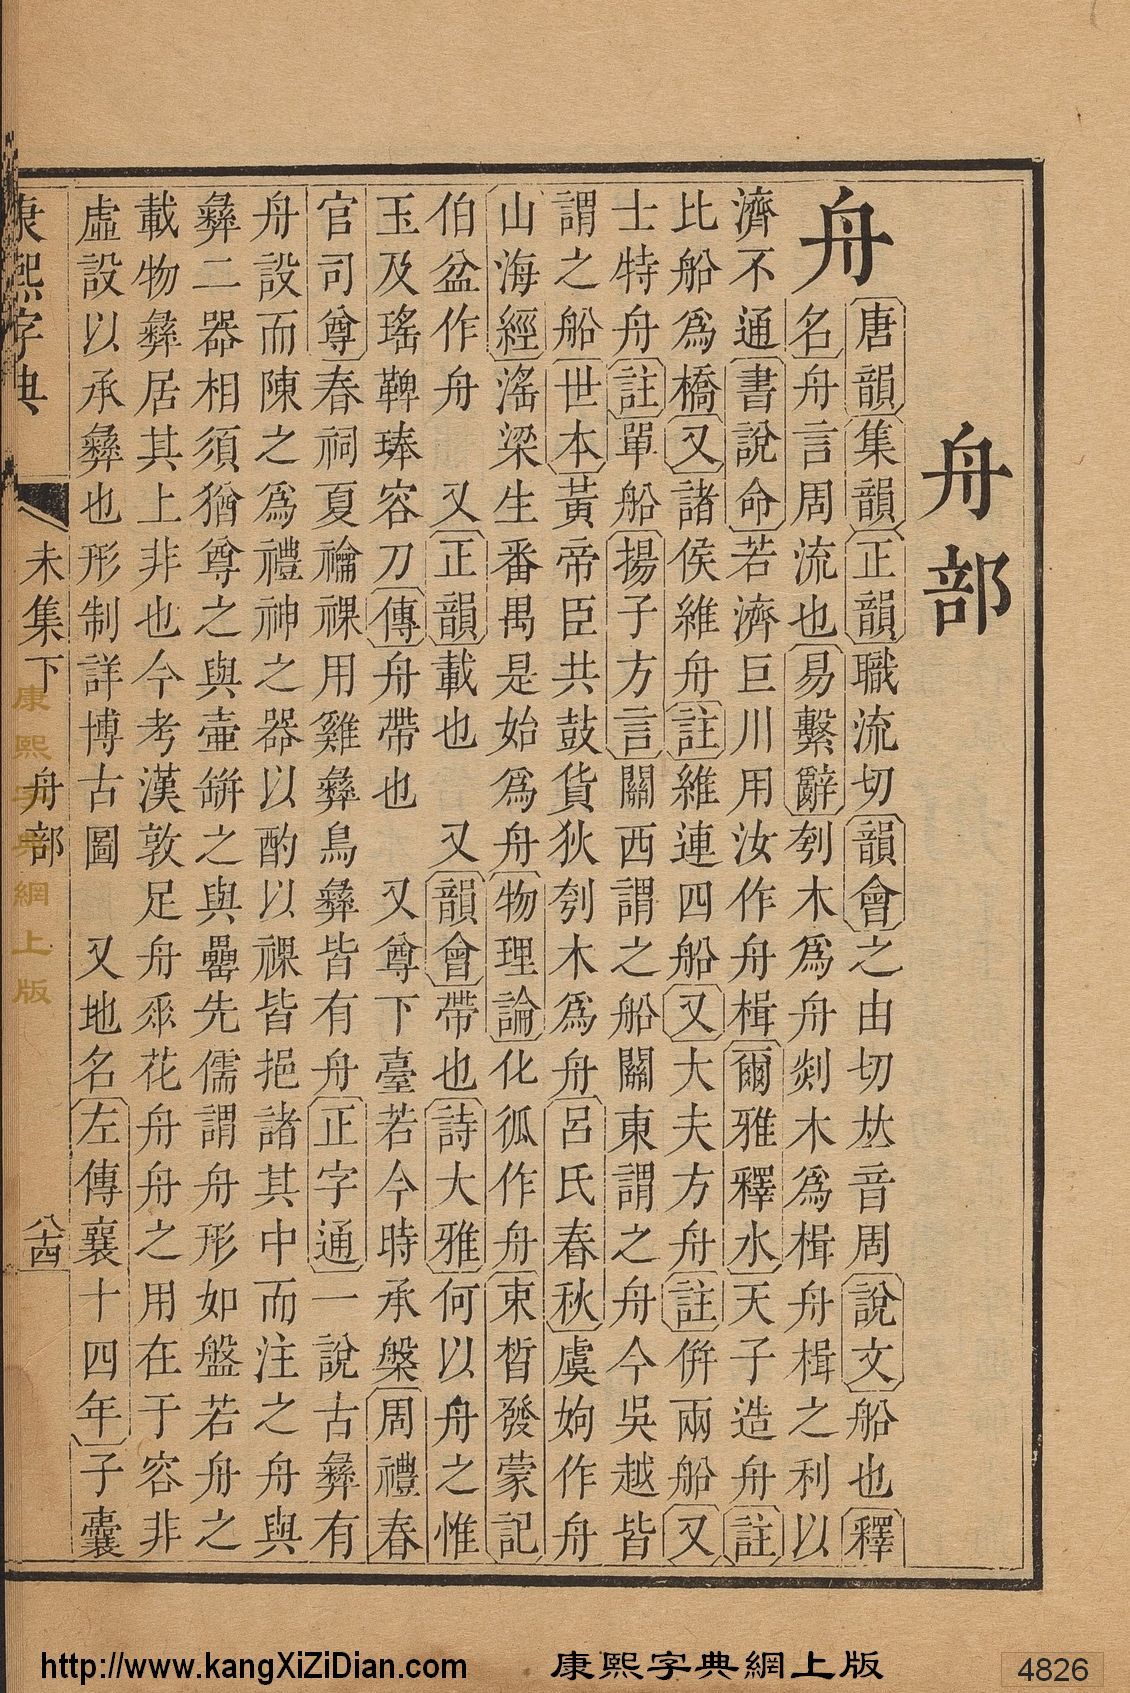 舟部
舟
唐韻集韻正韻職流切韻會之由切𠀤音周說文船也釋
名舟言周流也易繫辭刳木爲舟剡木爲楫舟楫之利以
濟不通書說命若濟巨川用汝作舟楫爾雅釋水天子造舟註
比船爲橋又諸侯維舟註維連四船又大夫方舟註倂兩船又
士特舟註單船揚子方言關西謂之船關東謂之舟今吳越皆
謂之船世本黃帝臣共鼓貨狄刳木爲舟呂氏春秋虞姁作舟
山海經滛梁生番禺是始爲舟物理論化狐作舟束晳發蒙記
伯益作舟 又正韻載也 又韻會帶也詩大雅何以舟之惟
玉及瑤鞞琫容刀傳舟帶也 又尊下臺若今時承槃周禮春
官司尊春祠夏禴祼用雞彝鳥彝皆有舟正字通一說古彝有
舟設而陳之爲禮神之器以酌以祼皆挹諸其中而注之舟與
彝二器相須猶尊之與壷缾之與罍先儒謂舟形如盤若舟之
載物彝居其上非也今考漢敦足舟𠂹花舟舟之用在于容非
虛設以承彝也形制詳博古圖 又地名左傳襄十四年子囊
康熙字典 未集下 舟部 八四
康熙字典網上版
http://www.kangXiZiDian.com 康熙字典網上版 4826